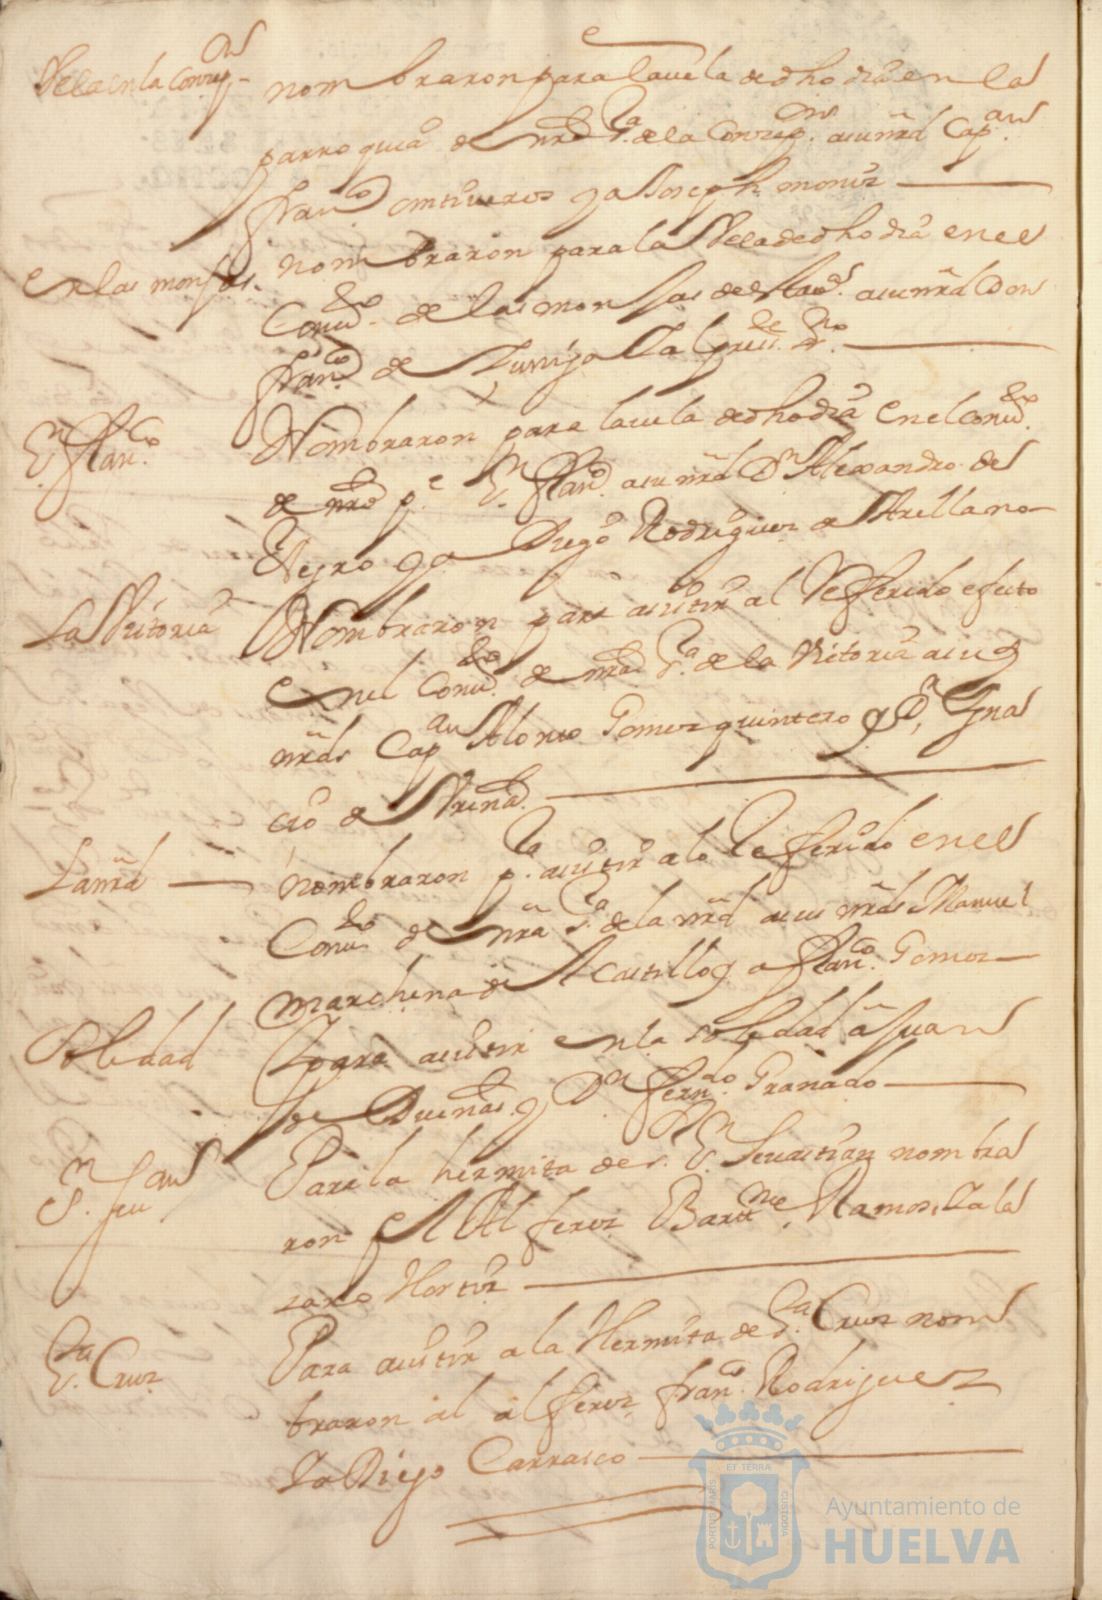 Vela en la Concepon
nombraron para la vela de dho dia en la
parroquia de nra Sa. de la Concepon. a su mrd Capan.
Franco ontiveros y a Joseph moniz
en las monjas.
nombraron para la Vela de dho dia en el
Convto. de las monjas de esta va. a su mrd Don
Franco de Zuñiga
En Sn Franco.
Nombraron para la vela de dho dia en el Convto.
de nro Pe Sn Franco. a su mrd Dn Alexandro del
Negro y a Diego Rodriguez de Arellano
La Vitoria
Nombraron para asistir al Refferido efecto
en el Convto de nra Sa. de la Vitoria a sus
mrds Capan Alonso Gomez quintero y Dn Igna
cio de
La mrd
nombraron pa. asistir a lo Referido en el
Convto de nra Sa de la mrd a sus mrds Manuel
marchena del Castillo y a Franco. Gomez
Soledad
Y para asistir en la soledad a Juan
de Dueñas y Dn Ferndo. Granado
Sn Sevan
Para la hermita de Sn Sevastian nombra
ron el Alferez Bartme. Ramos, Y a la
zaro Hortiz
Sta Cruz
Para asistir a la Hermita de Sta Cruz nom
braron al alferez Franco Rodriguez
Y a Diego Carrasco
PORTUS MARIS
ET TERRÆ
CUSTODIA
Ayuntamiento de
HUELVA